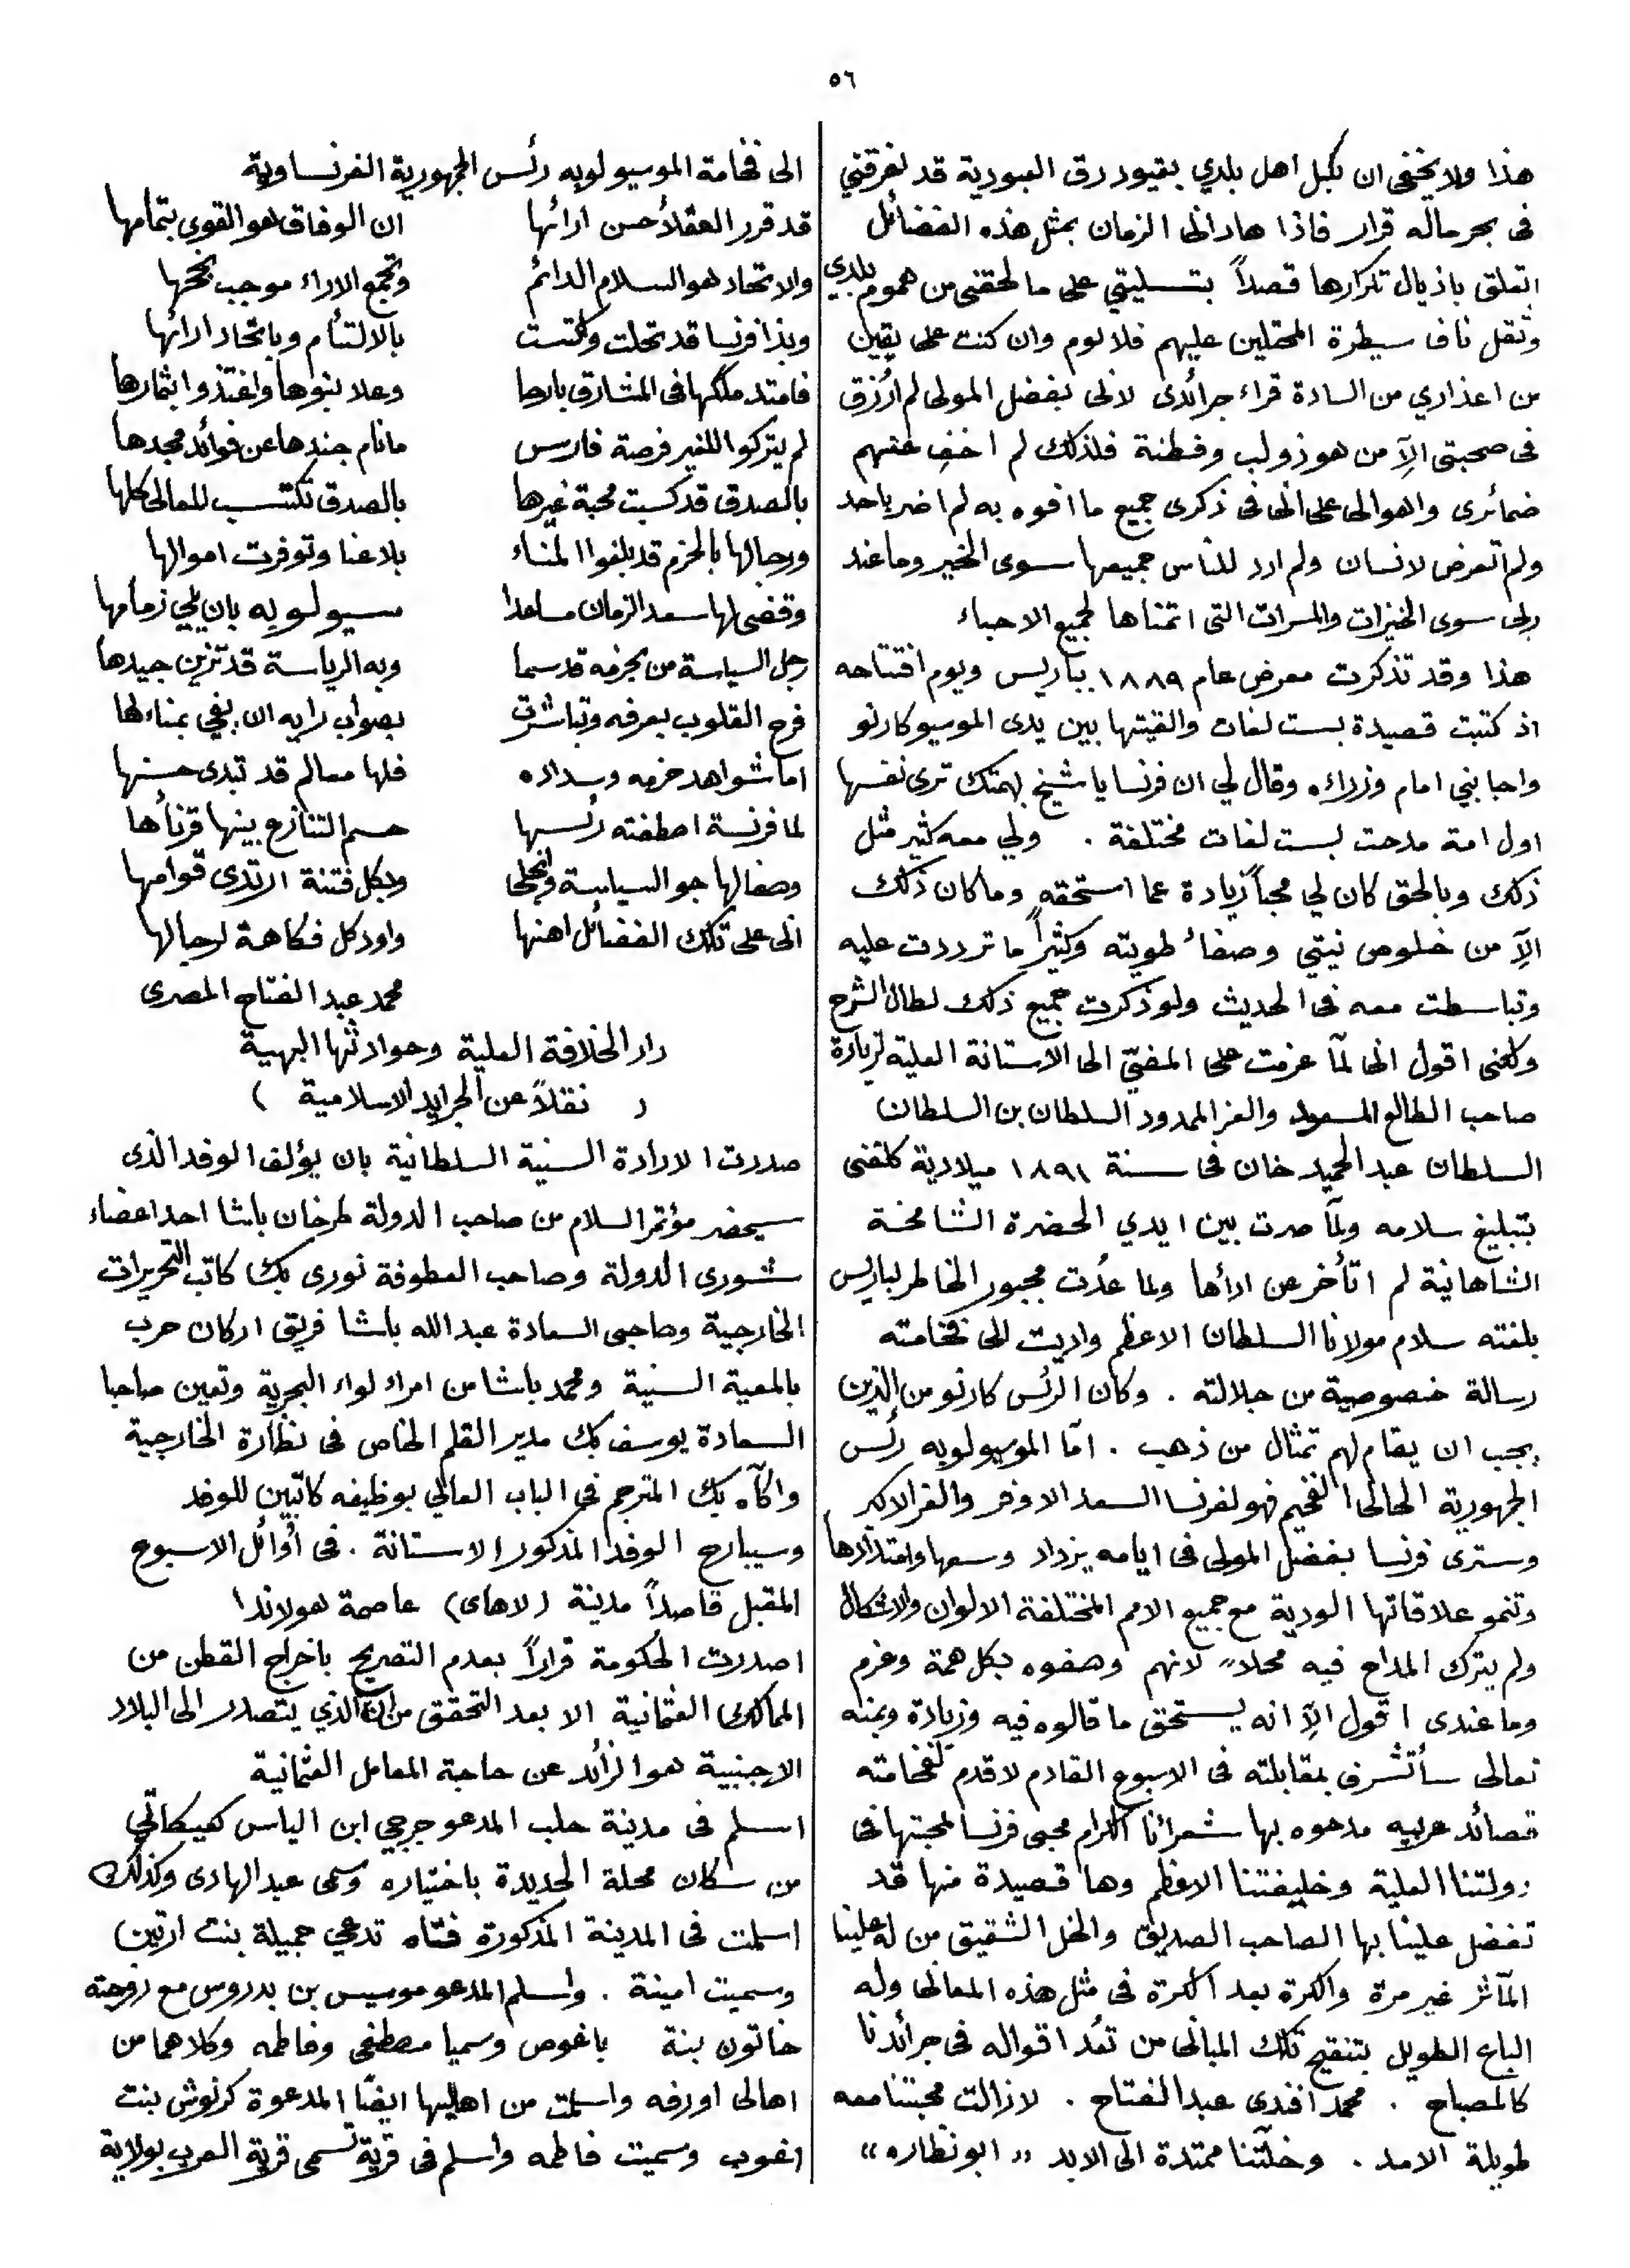 ٥٦
هذا ولا يخفى ان نكبل اهل بلدي بقيود رق العبودية قد لغرقني
فى بحر ماله قرار فاذا هاد انى الزمان بمثل هذه الفضائل
اتعلق باذيال تكرارها قصداً بتسليتي على ما لحقنى من هموم بلدي
وثقل ناف سيطرة المحتلين عليهم فلا لوم وان كنت على يقين
من اعذاري من السادة قراء جرائدى لانى بفضل المولى لم اُرزق
فى صحبتى الاّ من هو ذو لب وفطنة فلذلك لم اخفِ عنهم
ضمائرى واهوالى على انى فى ذكرى جميع ما افوه به لم اضر باحد
ولم اتعرض لانسان ولم ارد للناس جميعها سوى الخير وما عند
ربى سوى الخيرات والمسرات التى اتمناها لجميع الاحباء
هذا وقد تذكرت معرض عام ١٨٨٩ بباريس ويوم افتتاحه
اذ كتبت قصيدة بست لغات والقيتها بين يدى الموسيو كارنو
واجابني امام وزراءه وقال لي ان فرنسا يا شيخ بهمتك ترى نفسها
اول امة مدحت بست لغات مختلفة . ولي معه كثير مثل
ذلك وبالحق كان لي محباً زيادة عما استحقه وما كان ذلك
الاّ من خلوص نيتي وصفاء طويته وكثيراً ما ترددت عليه
وتباسطت معه فى الحديث ولو ذكرت جميع ذلك لطال الشرح
ولكنى اقول انى لمّا عزمت على المضيّ الى الاستانة العلية لزيارة
صاحب الطالع المسعود والعز الممدود السلطان بن السلطان
السلطان عبد الحميد خان فى سنة ١٨٩١ ميلادية كلفنى
بتبليغ سلامه ولمّا صرت بين ايدي الحضرة الشامخة
الشاهانية لم اتأخر عن ادأها ولما عُدت مجبور الخاطر لباريس
بلغته سلام مولانا السلطان الاعظم واديت الى فخامته
رسالة خصوصية من جلالته . وكان الرئس كارنو من الذين
يجب ان يقام لهم تمثال من ذهب . امّا الموسيو لوبه رئس
الجمهورية الحالى الفخيم فهو لفرنسا السعد الاوفر والعز الاكبر
وسترى فرنسا بفضل المولى فى ايامه يزداد وسعها وامتدادها
وتنمو علاقاتها الودية مع جميع الامم المختلفة الالوان والاشكال
ولم يترك المداح فيه محلاً لانهم وصفوه بكل همة وعزم
وما عندى اقول الاّ انه يستحق ما قالوه فيه وزيادة وبمنه
تعالى سأتشرف بمقابلته فى الاسبوع القادم لاقدم لفخامته
قصائد عربيه مدحوه بها شعرائنا الكرام محبى فرنسا لمحبتها فى
دولتنا العلية وخليفتنا الاعظم وها قصيدة منها قد
تفضل علينا بها الصاحب الصديق والخل الشقيق من له علينا
المآثر غير مرة والكرة بعد الكرة فى مثل هذه المعانى وله
الباع الطويل بتنقيح تلك المبانى من تعُد اقواله فى جرائدنا
كالمصباح . محمد افندى عبد الفتاح . لازالت محبتنا معه
طويلة الامد . وخلّتنا ممتدة الى الابد " ابو نظاره "
الى فخامة الموسيو لوبه رئس الجمهورية الفرنساوية
قد قرر العقلاُ حسن ارائها ان الوفاق هو القوى بتمامها
والاتحاد هو السلام الدائم وتجمع الاراء موجب نجحها
وبذا فرنسا قد تحلت واكتست بالالتأم وباتحاد ارائها
فامتد ملكها فى المشارق بارها وعلا بنوها واغتذوا بثمارها
لم يتركوا للغير فرصة فارس ما نام جندها عن فوائد مجدها
بالصدق قد كسبت محبة غيرها بالصدق تكتسب المعالى كلها
ورجالها بالحزم قد بلغوا المناء بلا عنا وتوفرت اموالها
وقضى لها سعد الزمان مساعدا سيولوبه بان يلي زمامها
رجل السياسة من بحزمه قد سما وبه الرياسة قد تزين جيدها
فرح القلوب بعرفه وتباشرت بصواب رايه ان يفي بمناءها
اما شواهد حزمه وسداده فلها معالم قد تبدى حسنها
لما فرنسة اصطفته رئسها حسم التنازع بينها قرنأها
وصفا لها جو السياسة وانجلى وبكل فتنة ارتدى قوامها
انى على تلك الفضائل اهنها واود كل فكاهة لرجالها
محمد عبد الفتاح المصرى
دار الخلافة العلية وحوادثها البهية
( نقلاً عن الجرايد الاسلامية )
صدرت الارادة السنية السلطانية بان يؤلف الوفد الذى
سيحضر مؤتمر السلام من صاحب الدولة طرخان باشا احد اعضاء
شورى الدولة وصاحب العطوفة نورى بك كاتب التحريرات
الخارجية وصاحبى السعادة عبد الله باشا فريق اركان حرب
بالمعية السنية ومحمد باشا من امراء لواء البحرية وتعين صاحبا
السعادة يوسف بك مدير القلم الخاص فى نظارة الخارجية
واكاه بك المترجم فى الباب العالي بوظيفه كاتبين للوفد
وسيبارح الوفد المذكور الاستانة . فى أوائل الاسبوع
المقبل قاصداً مدينة (لاهاى) عاصمة هولاندا
اصدرت الحكومة قراراً بعدم التصريح باخراج القطن من
الممالك العثمانية الا بعد التحقق من ان الذي يتصدر الى البلاد
الاجنبية هو الزائد عن حاجة المعامل العثمانية
اسلم فى مدينة حلب المدعو جرجي ابن الياس كعيكاتي
من سكان محلة الجديدة باختياره وسمى عبد الهادى وكذلك
اسلمت فى المدينة المذكورة فتاه تدعي جميلة بنت ارتين
وسميت امينة . واسلم المدعو موسيس بن بدروس مع زوجته
خاتون بنة باغوص وسميا مصطفى وفاطمه وكلاهما من
اهالى اورفه واسلمت من اهاليها ايضًا المدعوة كرنوش بنت
اغوب وسميت فاطمه وأسلم فى قرية تسمى قرية العرب بولاية